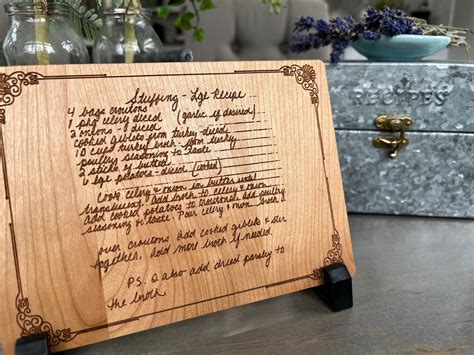 Stuffing - Lge Recipe
4 bags croutons
1 pkg celery diced (garlic if desired)
2 onions - diced
cooked giblets from turkey - diced
10 cups turkey broth - from turkey
poultry seasoning to taste
2 sticks of butter
1 lge potatoes - diced (cooked)
Cook celery & onion in butter until
translucent. Add broth to celery & onion
add cooked potatoes to poultry
seasoning to taste. Pour celery & onion broth
over croutons add cooked giblets & stir
together, add more broth if needed.
P.S. I also add dried parsley to
the broth
RECIPES